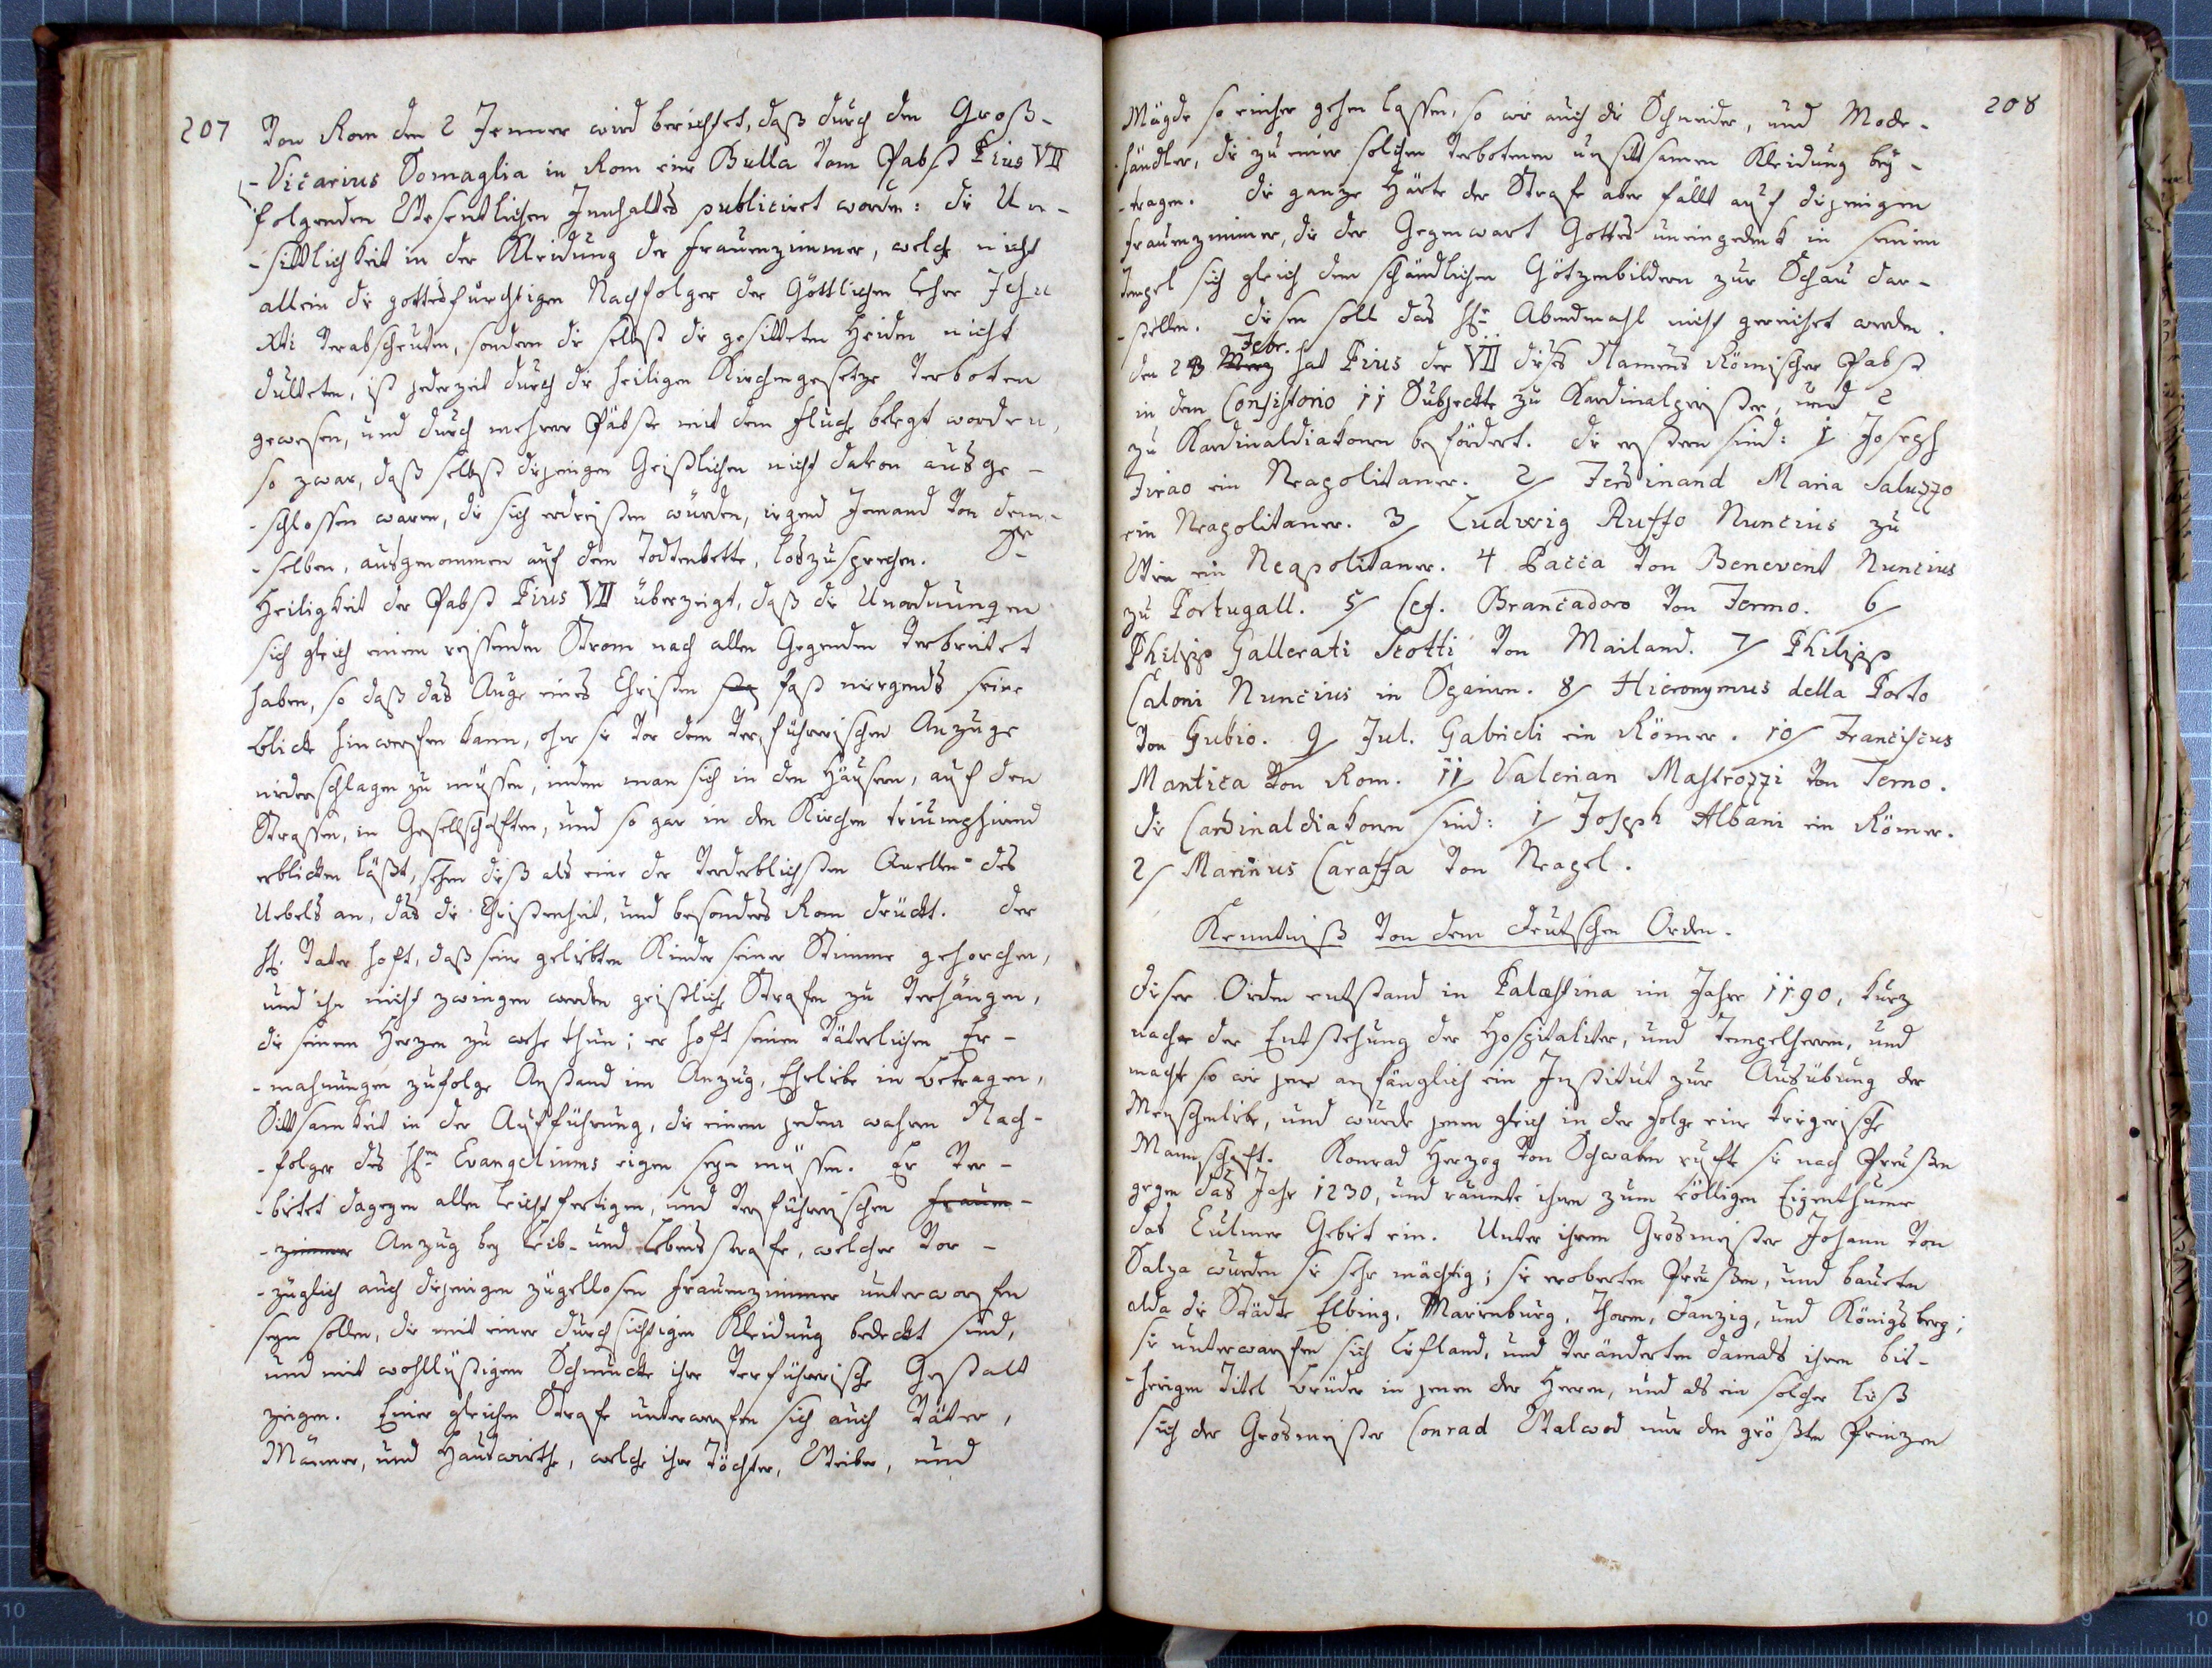 207
Von Rom den 2 Jenner wird berichtet, daß durch den Groß-
-Vicarius Somaglia in Rom eine Bulla vom Pabst Pius VII
folgenden Wesentlichen Innhaltes publiciret worden: die Un-
-sittlichkeit in der Kleidung der Frauenzimmer, welche nicht
allein die gottesfurchtigen Nachfolger der Göttlichen Lehre Jesu
Xti verabscheuten, sondern die selbst die gesitteten Heiden nicht
dulteten, ist jederzeit durch die heiligen Kirchengesetze verboten
gewesen, und durch mehrere Päbste mit dem Fluche belegt worden,
so zwar, daß selbst diejenigen Geistlichen nicht davon ausge-
-schlossen waren, die sich erdreisten würden, irgend Jemand von dem-
-selben, ausgenommen auf dem Todtenbette, loszusprechen. Se
Heiligkeit der Pabst Pius VII überzeigt, daß die Unordnungen
sich gleich einem reissenden Strom nach allen Gegenden verbreitet
haben, so daß das Auge eines Christen fast nirgends seine
Blicke hinwerfen kann, ohne sie vor dem verführerischen Anzuge
niederschlagen zu müssen, indem man sich in den Häusern, auf den
Strassen, in Gesellschaften, und so gar in den Kirchen triumphirend
erblicken läßt, sehen dieß als eine der verderblichsten Quellen des
Uebels an, das die Christenheit, und besonders Rom drückt. Der
hl. Vater hoft, daß seine geliebten Kinder seiner Stimme gehorchen,
und ihn nicht zwingen werden geistliche Strafen zu verhängen,
die seinem Herzen zu wehe thun; er hoft seinen Väterlichen Er-
-mahnungen zufolge Anstand im Anzug, Ehrliebe in Betragen,
Sittsamkeit in der Aufführung, die einem jeden wahren Nach-
-folger des hlen Evangeliums eigen seyn müssen. Er ver-
-bietet dagegen allen leichtfertigen, und verführerischen Frauen-
-zimmer Anzug bey Leib- und Lebensstrafe, welcher vor-
-züglich auch diejenigen zügellosen Frauenzimmer unterworfen
seyn sollen, die mit einer durchsichtigen Kleidung bedeckt sind,
und mit wohllüstigem Schmucke ihre verführerische Gestalt
zeigen. Einer gleichen Strafe unterwerfen sich auch Väter,
Männer, und Hauswirthe, welche ihre Töchter, Weiber, und
208
Mägde so einher gehen lassen, so wie auch die Schneider, und Mode-
-händler, die zu einer solchen verbotenen unsittsamen Kleidung bey-
-tragen. Die ganze Härte der Strafe aber fällt auf diejenigen
Frauenzimmer, die der Gegenwart Gottes uneingedenk in seinem
Tempel sich gleich den schändlichen Götzenbildern zur Schau dar-
-stellen. Diesen soll das hle Abendmahl nicht gereichet werden.
Febr.
den 23 Merz hat Pius der VII dieses Namens Römischer Pabst
in dem Consistorio 11 Subjeckte zu Kardinalpriester, und 2
zu Kardinaldiakonen befördert. die ersteren sind: 1 Joseph
Firao ein Neapolitaner. 2/ Ferdinand Maria Saluzzo
ein Neapolitaner. 3/ Ludwig Ruffo Nuncius zu
Wien ein Neapolitaner. 4 Pacca von Benevent Nuncius
zu Portugall. 5/ Cef. Brancadoro von Fermo. 6/
Philipp Gallerati Scotti von Mailand. 7/ Philipp
Caloni Nuncius in Spanien. 8/ Hieronymus della Porto
von Gubio. 9/ Jul. Gabrieli ein Römer. 10/ Franciscus
Mantica von Rom. 11/ Valerian Mastrozzi von Terno.
die Cardinaldiakonen sind: 1/ Joseph Albani ein Römer.
2/ Marinus Caraffa von Neapel.
Kenntniß von dem deutschen Orden.
Dieser Orden entstand in Palæstina im Jahre 1190, kurz
nach der Entstehung der Hospitaliter, und Tempelherren, und
machte so wie jene anfänglich ein Institut zur Ausübung der
Menschenliebe, und wurde jenen gleich in der Folge eine kriegerische
Mannschaft. Konrad Herzog von Schwaben rufte sie nach Preußen
gegen das Jahr 1230, und räumte ihnen zum völligen Eigenthume
das Culmer Gebiet ein. Unter ihrem Grosmeister Johann von
Salza wurden sie sehr mächtig; sie eroberten Preußen, und bauten
alda die Städte Elbing, Marienburg, Thorn, Danzig, und Königsberg;
sie unterwarfen sich Liefland, und veränderten damals ihren bis-
-herigen Titel Brüder in jenen der Herren, und als ein solcher ließ
sich der Grosmeister Conrad Walwod nur den größten Prinzen